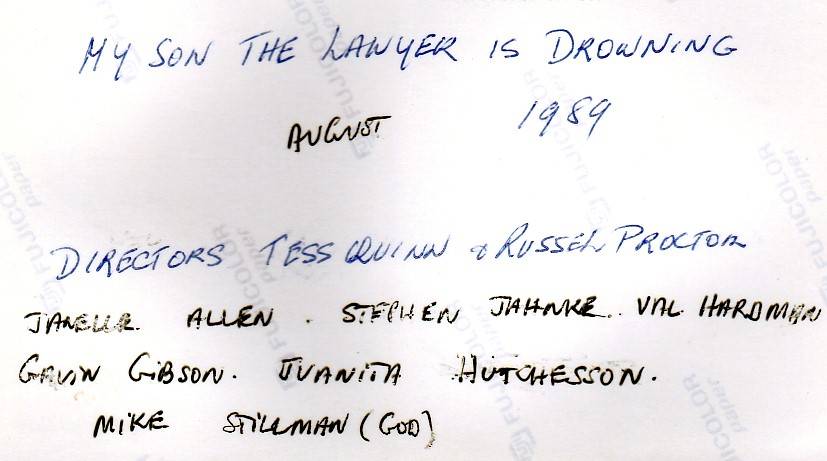 MY SON THE LAWYER IS DROWNING
AUGUST 1989
DIRECTORS TESS QUINN & RUSSEL PROCTOR
JANELLE ALLEN . STEPHEN JAHNKE . VAL HARDMAN
GAVIN GIBSON . JUANITA HUTCHESSON .
MIKE STILLMAN (GOD)
FUJICOLOR
paper